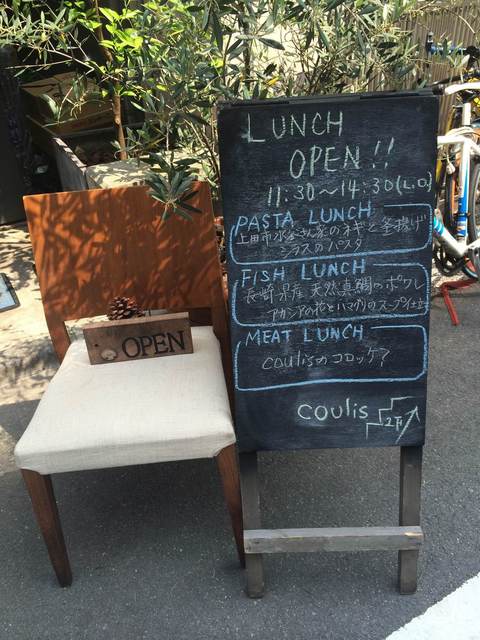 LUNCH
OPEN!!
11:30〜14:30(L.O)
PASTA LUNCH
上田市水谷さん家のネギと釜揚げ
シラスのパスタ
FISH LUNCH
長崎県産 天然真鯛のポワレ
アカシアの花とハマグリのスープ仕立
MEAT LUNCH
coulisのコロッケ?
coulis 2F
OPEN